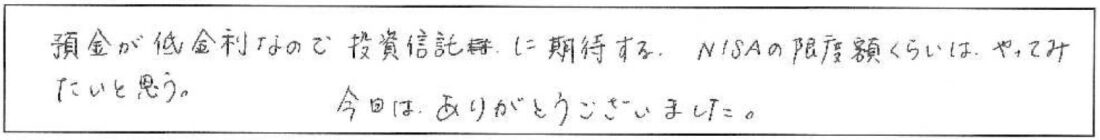 預金が低金利なので 投資信託に期待する。 NISAの限度額くらいは、やってみ
たいと思う。
今回は、ありがとうございました。